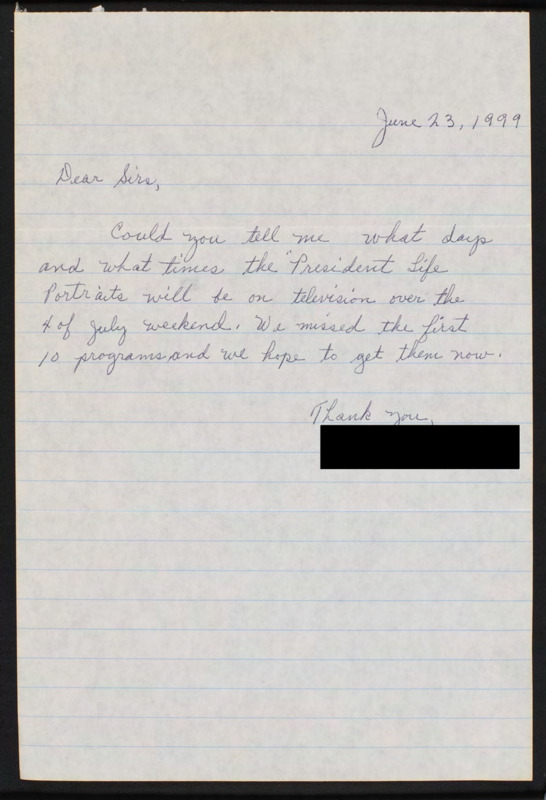 June 23, 1999
Dear Sirs,
Could you tell me what days
and what times the "President Life
Portraits will be on television over the
4 of July weekend. We missed the first
10 programs and we hope to get them now.
Thank you,